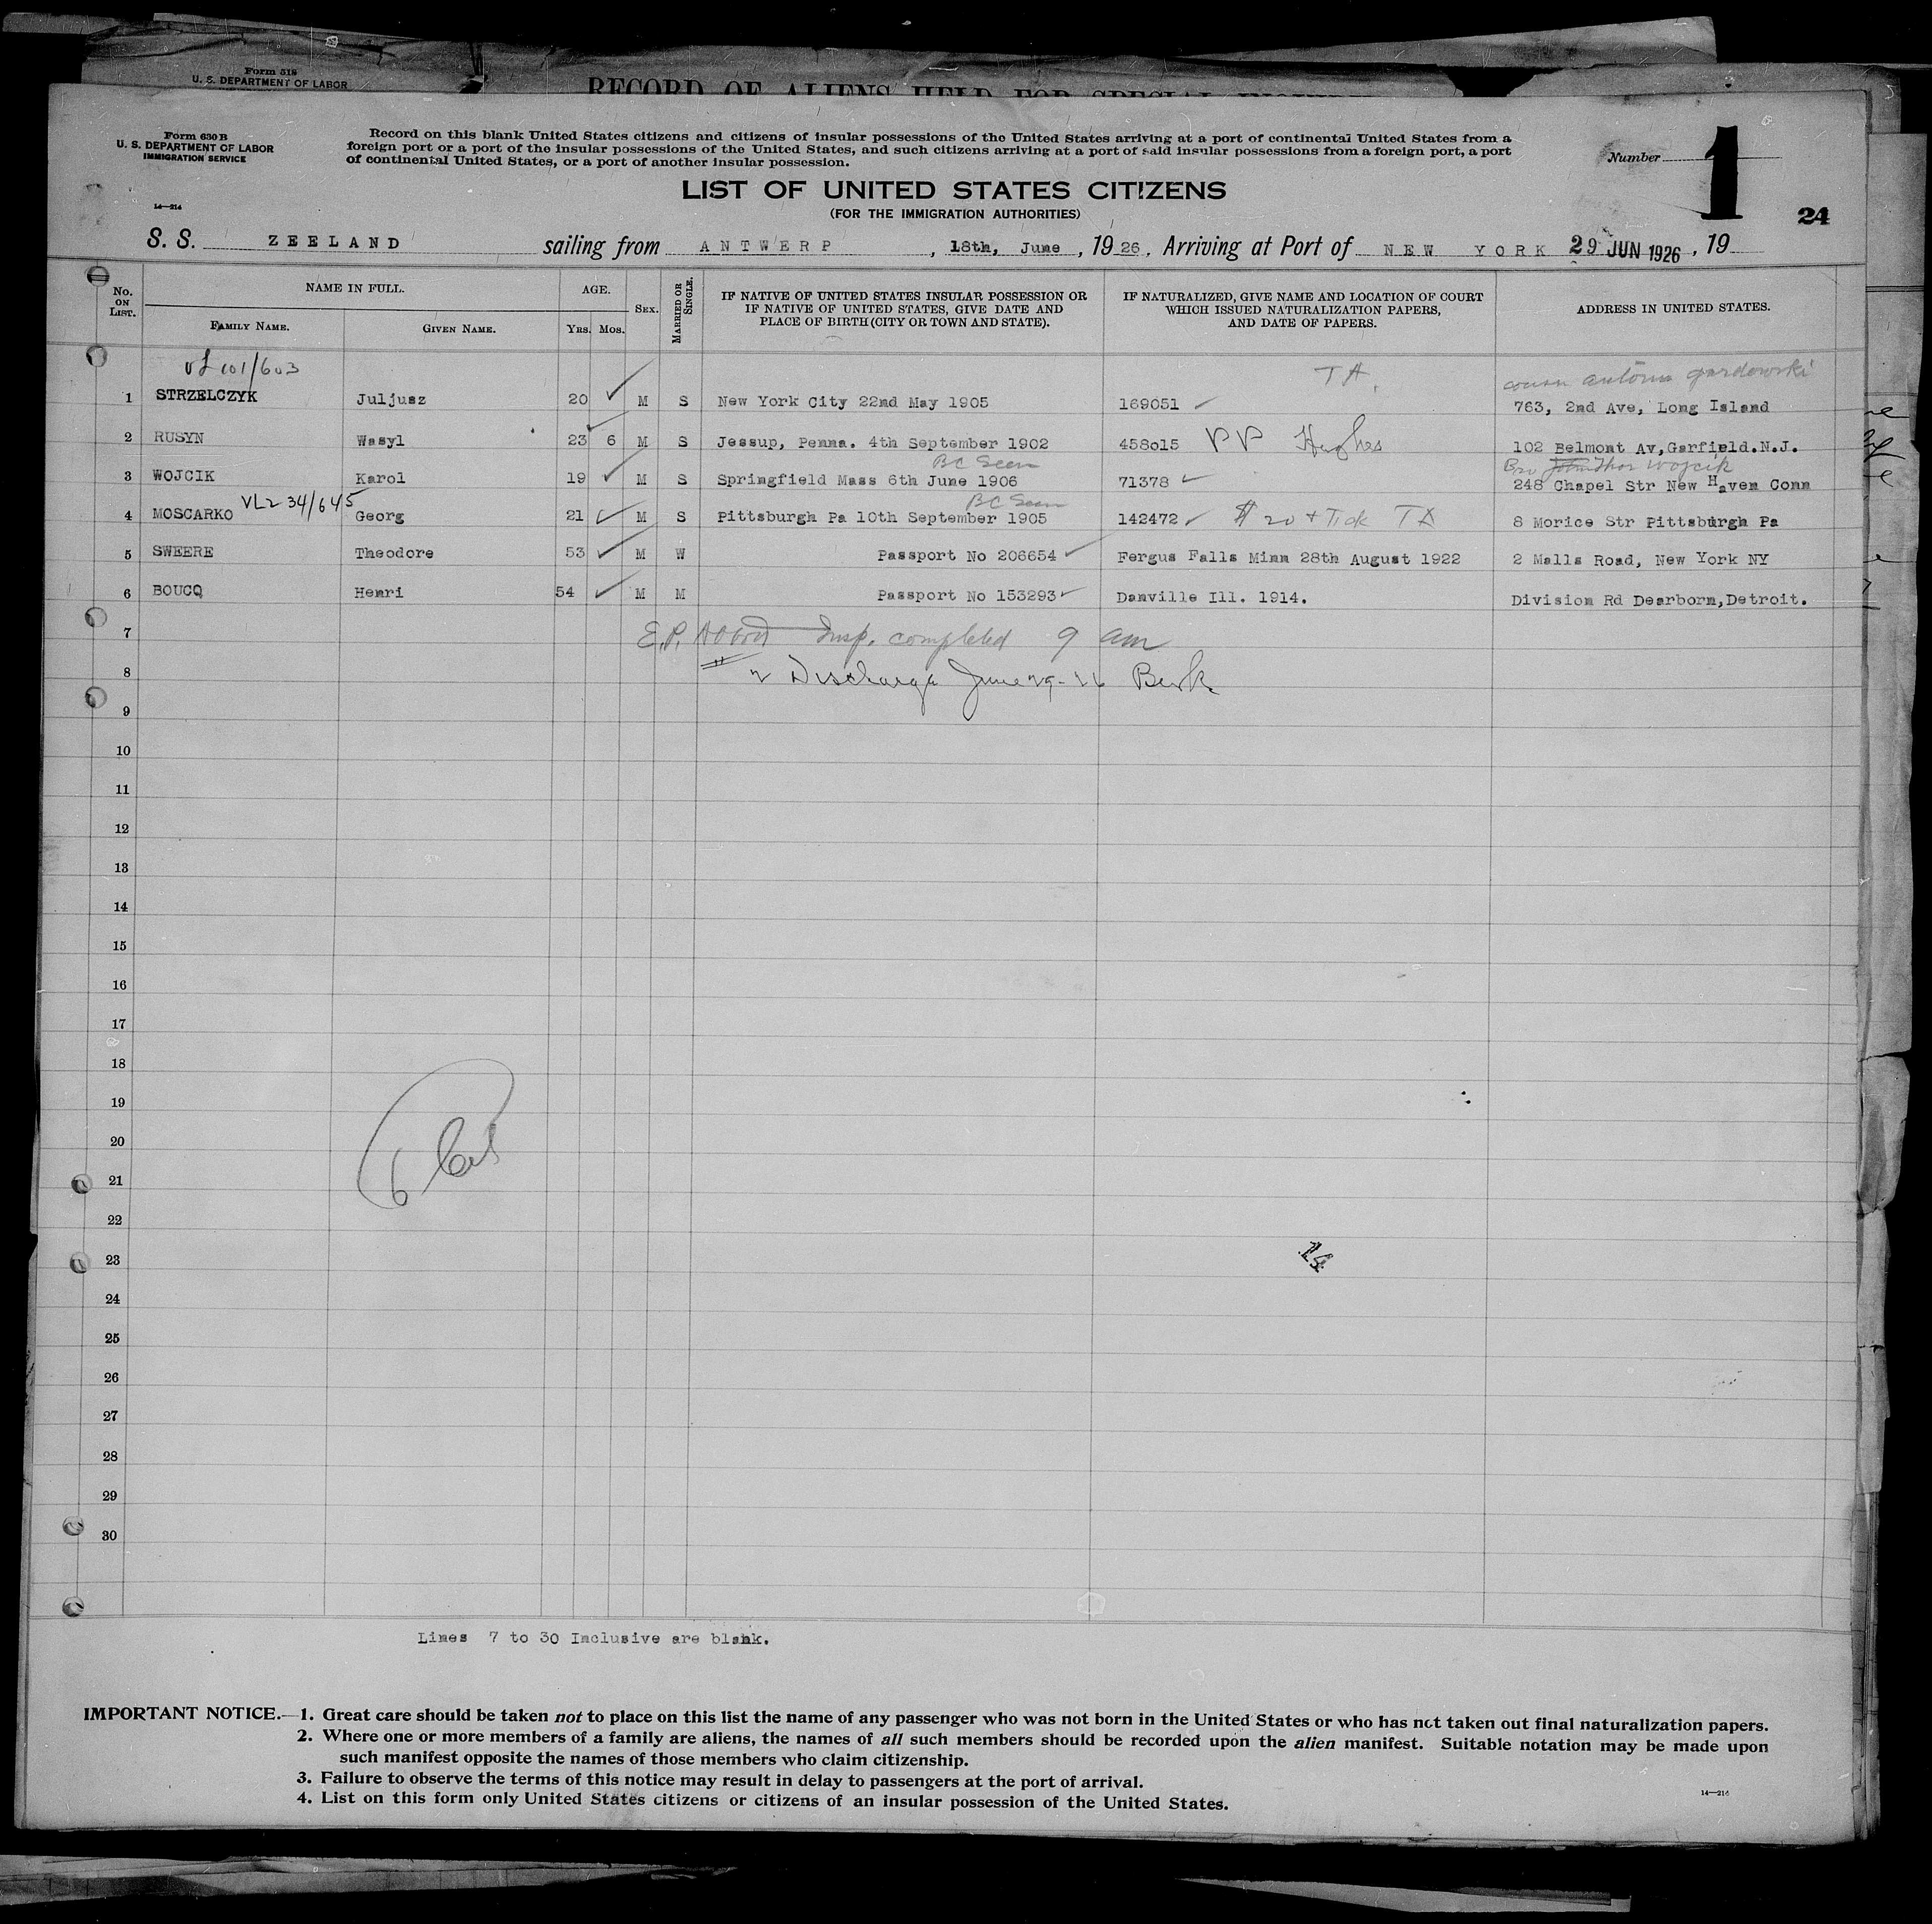 Form 518
U. S. DEPARTMENT OF LABOR
RECORD OF ALIENS HELD FOR SPECIAL
Form 630 B
U. S. DEPARTMENT OF LABOR
IMMIGRATION SERVICE
14—214
Record on this blank United States citizens and citizens of insular possessions of the United States arriving at a port of continental United States from a
foreign port or a port of the insular possessions of the United States, and such citizens arriving at a port of said insular possessions from a foreign port, a port
of continental United States, or a port of another insular possession.
Number 1
LIST OF UNITED STATES CITIZENS
(FOR THE IMMIGRATION AUTHORITIES)
24
S. S. ZEELAND sailing from ANTWERP, 18th, June, 1926. Arriving at Port of NEW YORK 29 JUN 1926, 19
No. ON LIST. NAME IN FULL. FAMILY NAME. GIVEN NAME. AGE. YRS. MOS. SEX. MARRIED OR SINGLE. IF NATIVE OF UNITED STATES INSULAR POSSESSION OR IF NATIVE OF UNITED STATES, GIVE DATE AND PLACE OF BIRTH (CITY OR TOWN AND STATE). IF NATURALIZED, GIVE NAME AND LOCATION OF COURT WHICH ISSUED NATURALIZATION PAPERS, AND DATE OF PAPERS. ADDRESS IN UNITED STATES.
101/603 TA.
1 STRZELCZYK Juljusz 20 M S New York City 22nd May 1905 169051 763, 2nd Ave, Long Island
2 RUSYN Wasyl 23 6 M S Jessup, Penna. 4th September 1902 458015 PP Hughes 102 Belmont Av,Garfield.N.J.
BC Seen Bro Wojcik
3 WOJCIK Karol 19 M S Springfield Mass 6th June 1906 71378 248 Chapel Str New Haven Conn
VL2 34/645 BC Seen
4 MOSCARKO Georg 21 M S Pittsburgh Pa 10th September 1905 142472 $20 + Tick TA 8 Morice Str Pittsburgh Pa
5 SWEERE Theodore 53 M W Passport No 206654 Fergus Falls Minn 28th August 1922 2 Malls Road, New York NY
6 BOUCQ Henri 54 M M Passport No 153293 Danville Ill. 1914. Division Rd Dearborn,Detroit.
7 E.P. Insp. completed 9 am
8 Discharge June 29-26
9
10
11
12
13
14
15
16
17
18
19
20
21
22
23
24
25
26
27
28
29
30
6
14
Lines 7 to 30 Inclusive are blank.
IMPORTANT NOTICE.—1. Great care should be taken not to place on this list the name of any passenger who was not born in the United States or who has not taken out final naturalization papers.
2. Where one or more members of a family are aliens, the names of all such members should be recorded upon the alien manifest. Suitable notation may be made upon
such manifest opposite the names of those members who claim citizenship.
3. Failure to observe the terms of this notice may result in delay to passengers at the port of arrival.
4. List on this form only United States citizens or citizens of an insular possession of the United States.
14—214